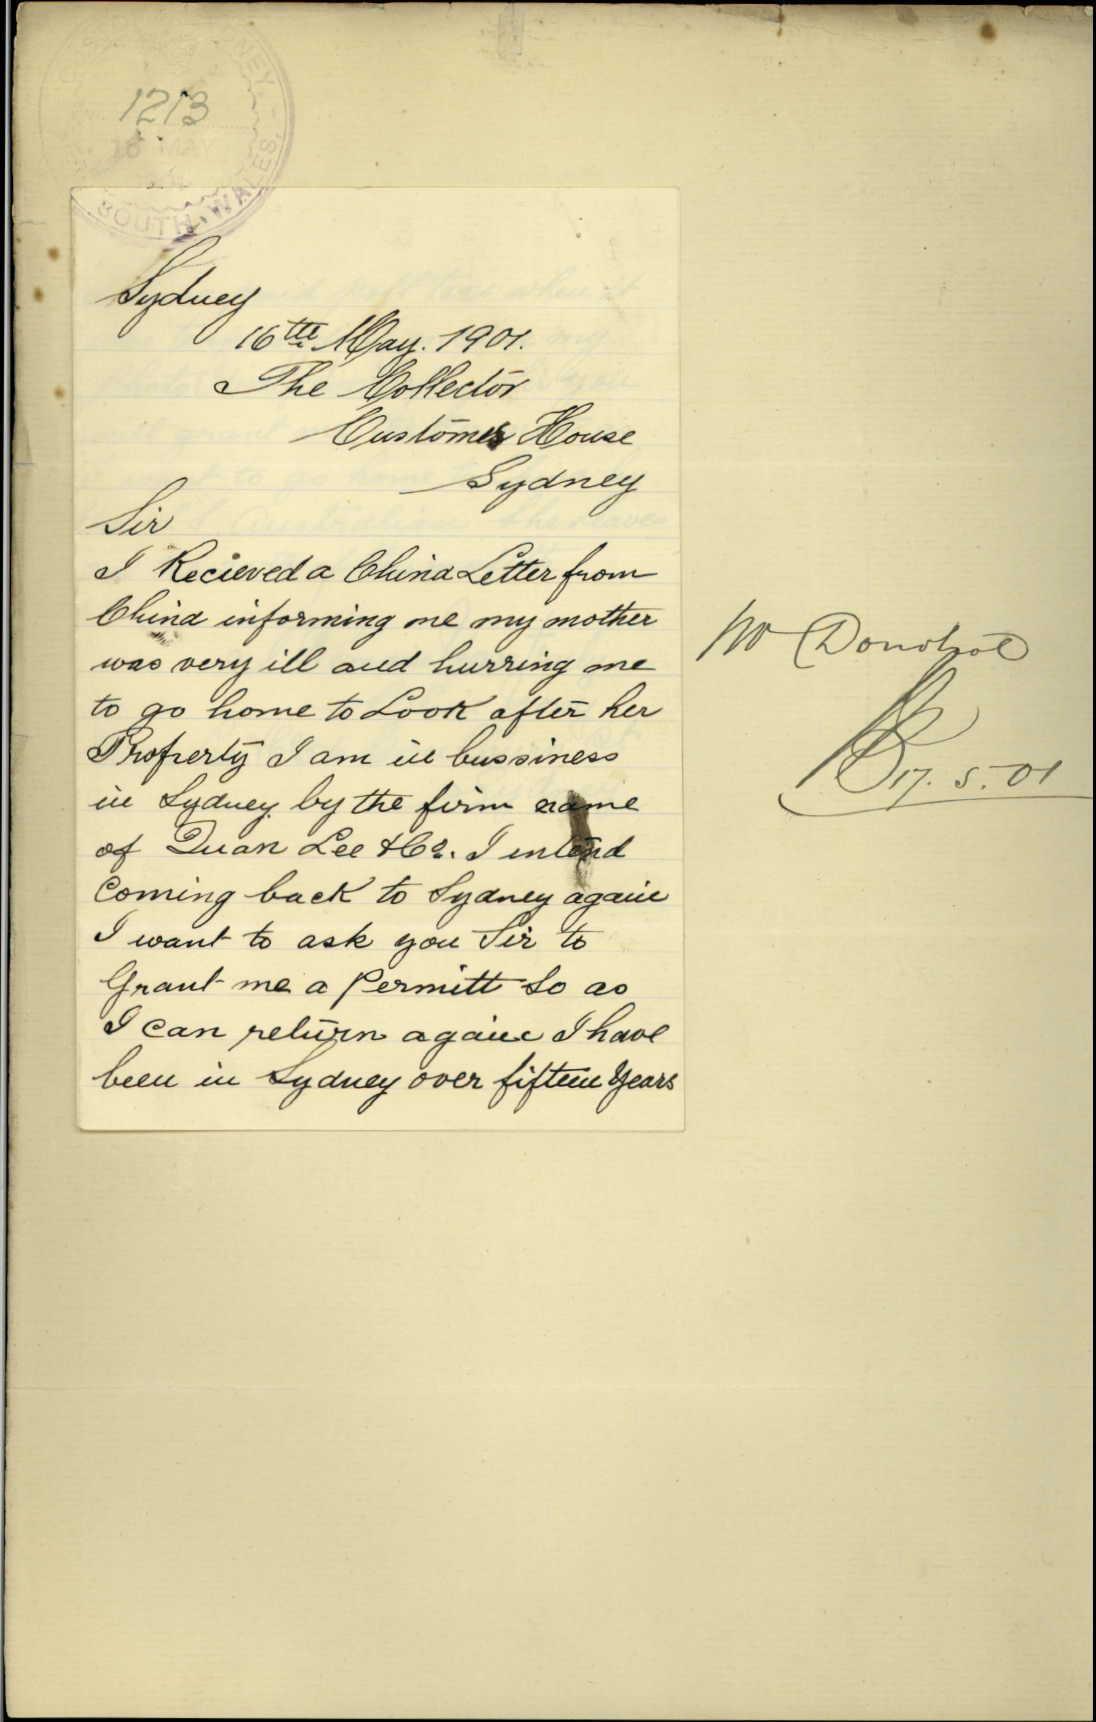 1213
16 MAY
SOUTH WALES.
Sydney
16th May. 1901.
The Collector
Customes House
Sydney
Sir
I Recieved a China Letter from
China informing me my mother
was very ill and hurring me
to go home to Look after her
Property I am in bussiness
in Sydney by the firm name
of Quan Lee & Co. I intend
Coming back to Sydney again
I want to ask you Sir to
Grant me a Permitt So as
I can return again I have
been in Sydney over fifteen Years
Mr Donohoe
17. 5. 01